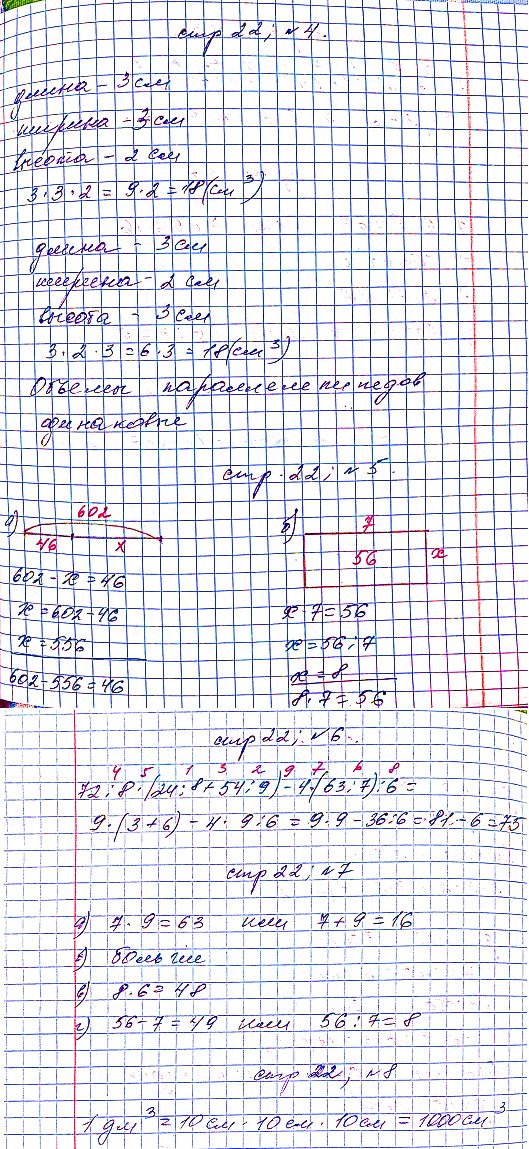 стр 22; №4.
длина - 3 см
ширина - 3 см
высота - 2 см
3·3·2 = 9·2 = 18 (см³)
длина - 3 см
ширина - 2 см
высота - 3 см
3·2·3 = 6·3 = 18 (см³)
Объемы параллелепипедов
одинаковые
стр. 22; №5.
а)
602
46 x
602 - x = 46
x = 602 - 46
x = 556
602 - 556 = 46
б)
7
56 x
x · 7 = 56
x = 56 : 7
x = 8
8 · 7 = 56
стр 22; №6.
4 5 1 3 2 9 7 6 8
72 : 8 · (24 : 8 + 54 : 9) - 4 · (63 : 7) : 6 =
9 · (3 + 6) - 4 · 9 : 6 = 9 · 9 - 36 : 6 = 81 - 6 = 75
стр 22; №7
а) 7 · 9 = 63 или 7 + 9 = 16
б) больше
в) 8 · 6 = 48
г) 56 - 7 = 49 или 56 : 7 = 8
стр 22; №8
1 дм³ = 10 см · 10 см · 10 см = 1000 см³